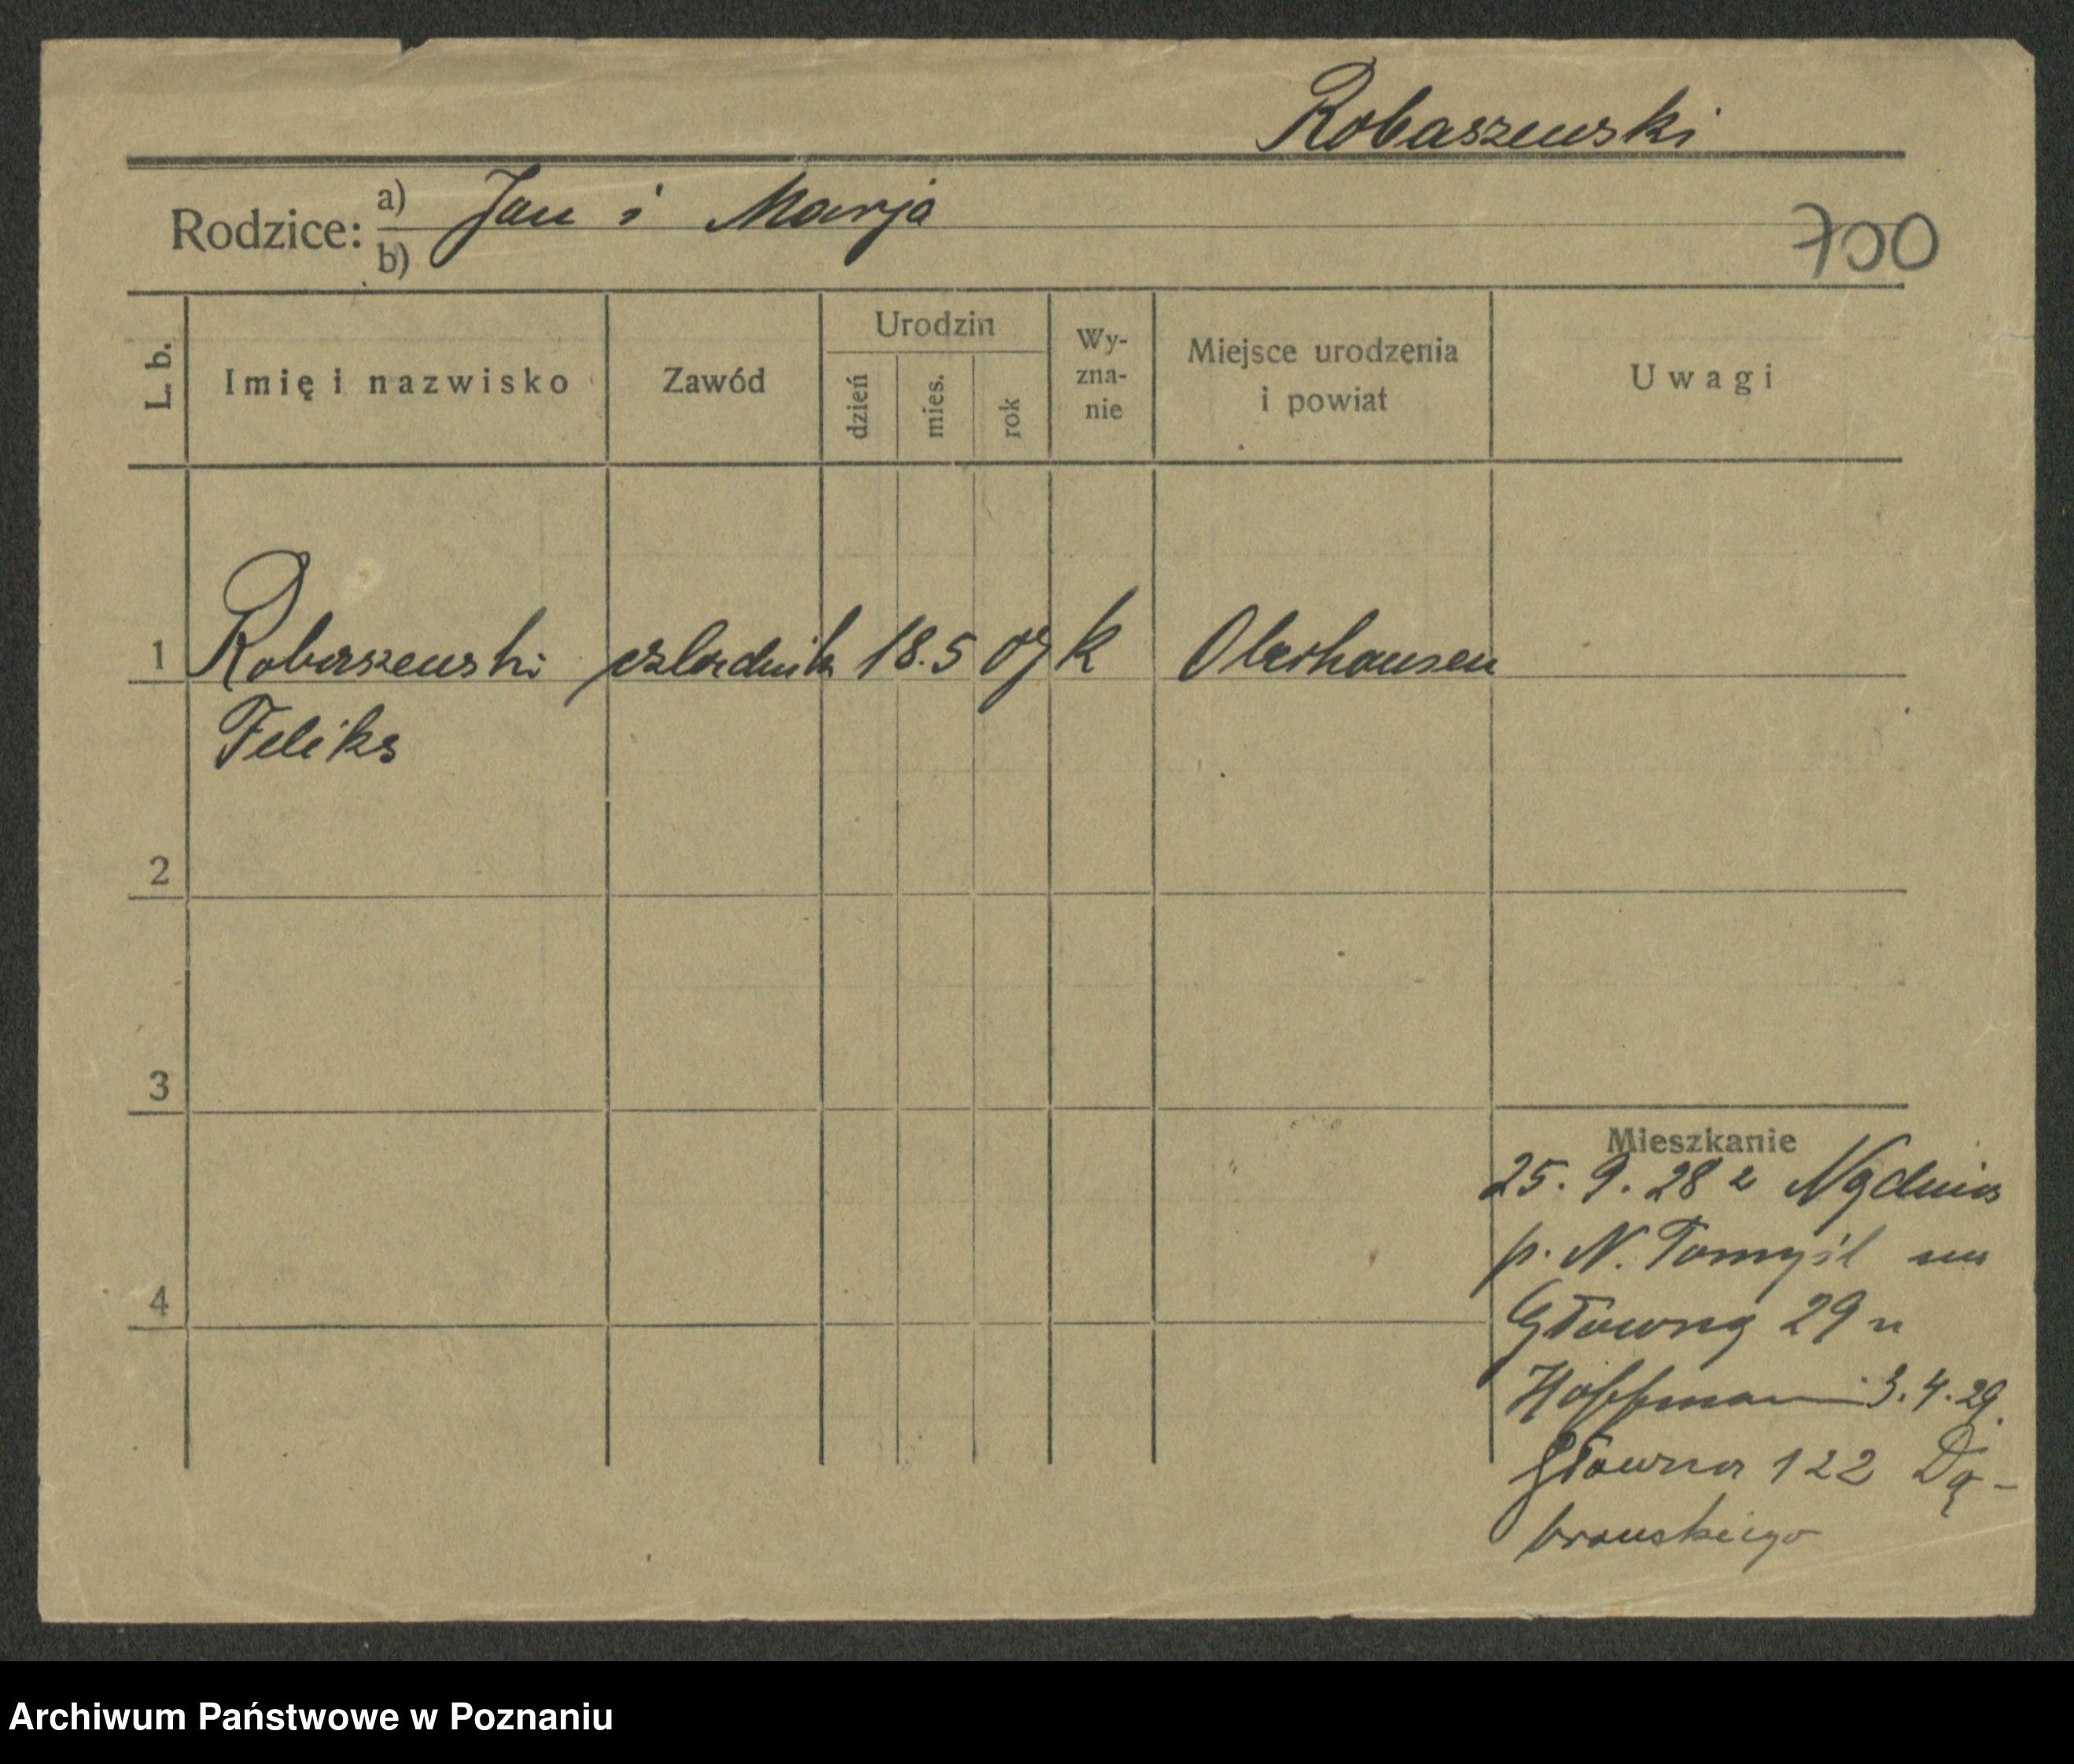 Robaszewski
Rodzice: a) Jan i Marja
b)
700
L. b. Imię i nazwisko Zawód Urodzin dzień mies. rok Wy-zna-nie Miejsce urodzenia i powiat Uwagi
1 Robaszewski czladnik 18. 5 09 k Oberhausen
Feliks
2
3
4
Mieszkanie
25. 9. 28 z Nądnia
p. N. Tomyśl na
Główną 29 u
Hoffmann 3. 4. 29.
Główna 122 Dą-
browskiego
Archiwum Państwowe w Poznaniu